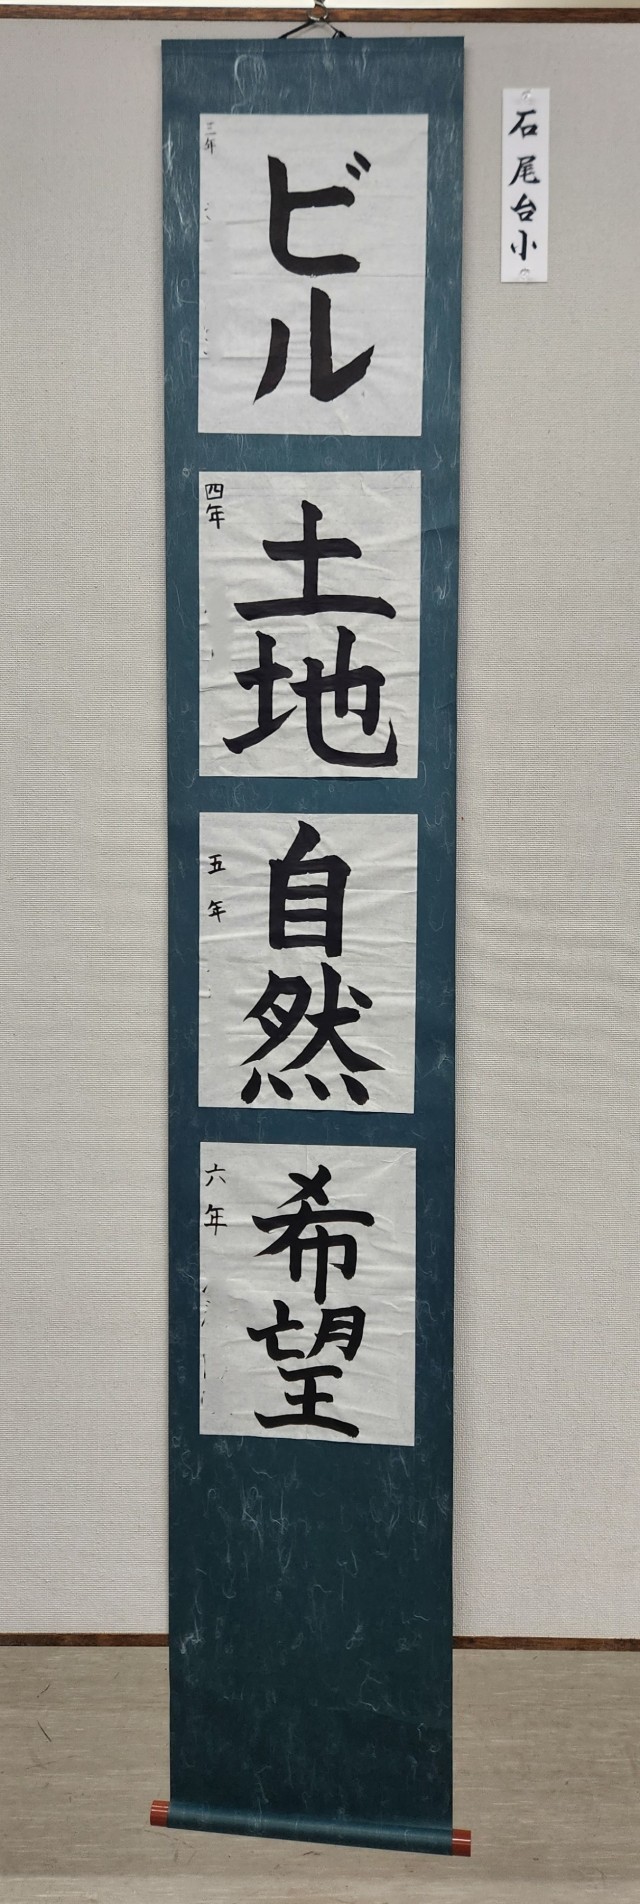 石尾台小
ビル
三年
土地
四年
自然
五年
希望
六年